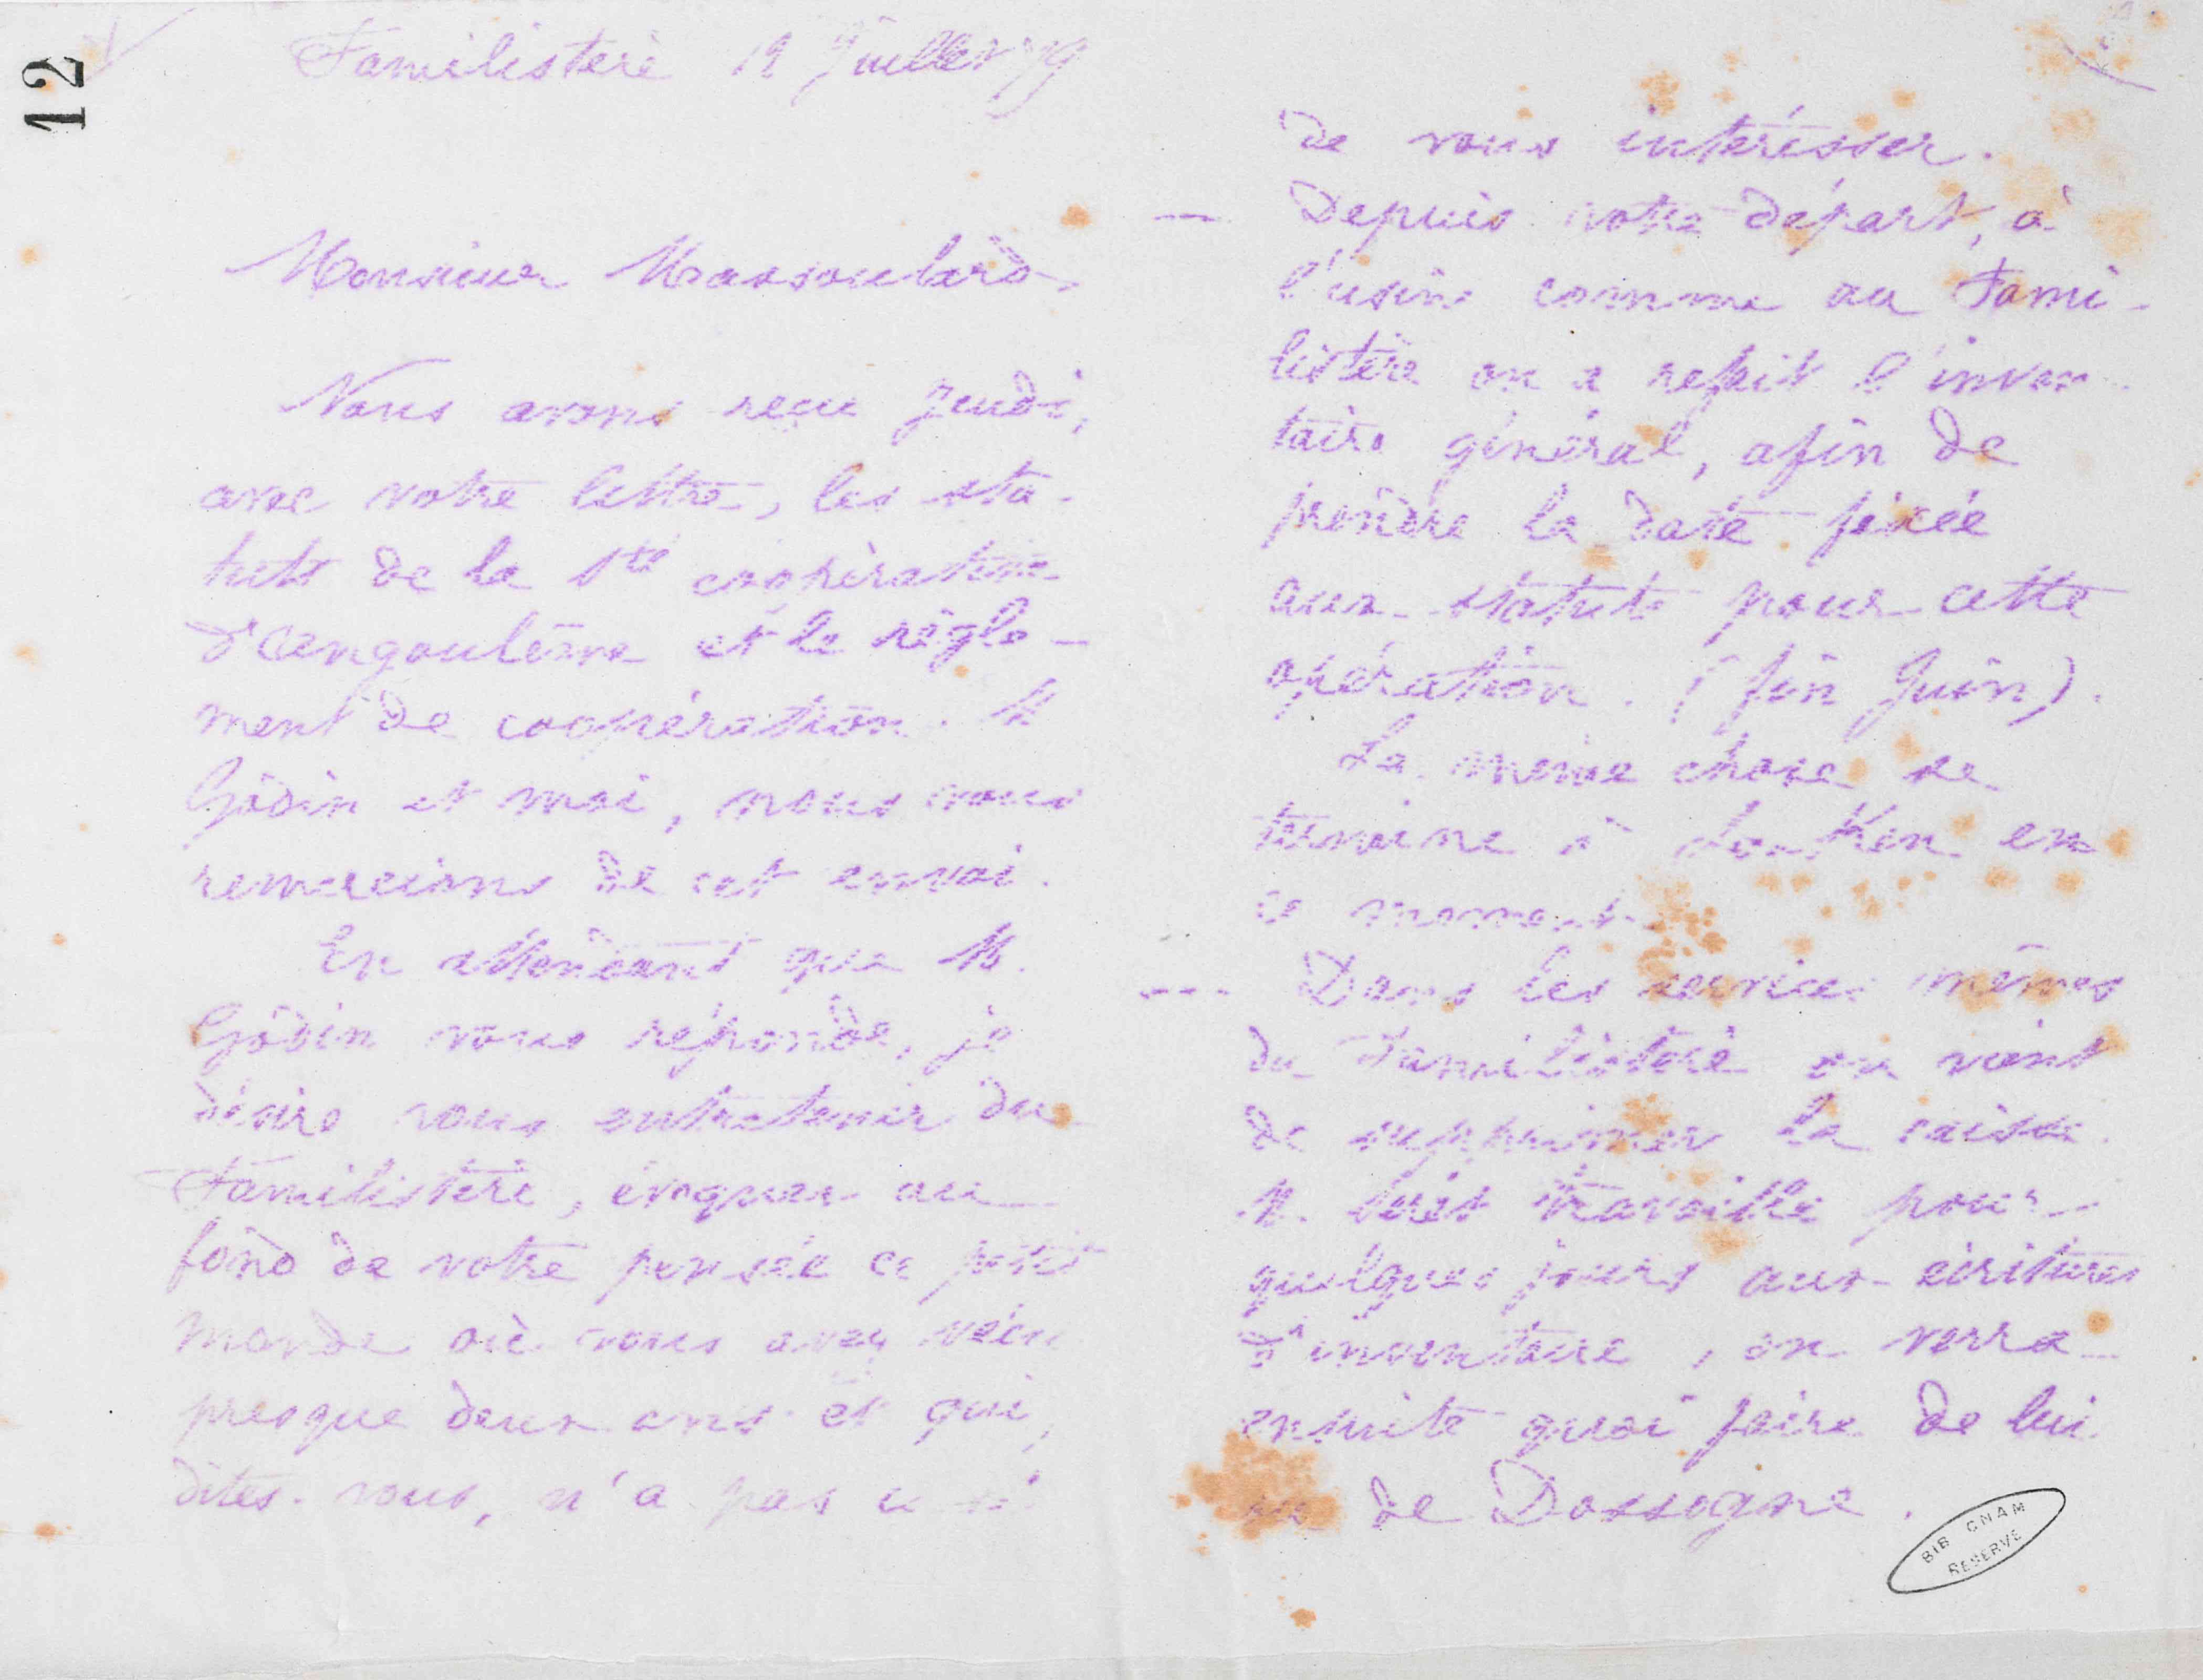 12
Familistère 12 Juillet 79
Monsieur Massoulard,
Nous avons reçu Jeudi,
avec votre lettre, les sta-
tuts de la Sté coopérative
d'Angoulême et le règle-
ment de coopération. M
Godin et moi, nous vous
remercions de cet envoi.
En attendant que M.
Godin vous réponde, je
désire vous entretenir du
Familistère, évoquer au
fond de votre pensée ce petit
monde où vous avez vécu
presque deux ans et qui,
dites-vous, n'a pas cessé
de vous intéresser.
Depuis votre départ, à
l'usine comme au Fami-
listère on a refait l'inven-
taire général, afin de
prendre la date fixée
aux statuts pour cette
opération. (fin Juin).
La même chose se
termine à Laeken en
ce moment.
Dans les services mêmes
du Familistère on vient
de supprimer la caisse.
M. travaille pour
quelques jours aux écritures
d'inventaire, on verra
ensuite quoi faire de lui
ou de Dassogne.
BIB CNAM
RESERVE